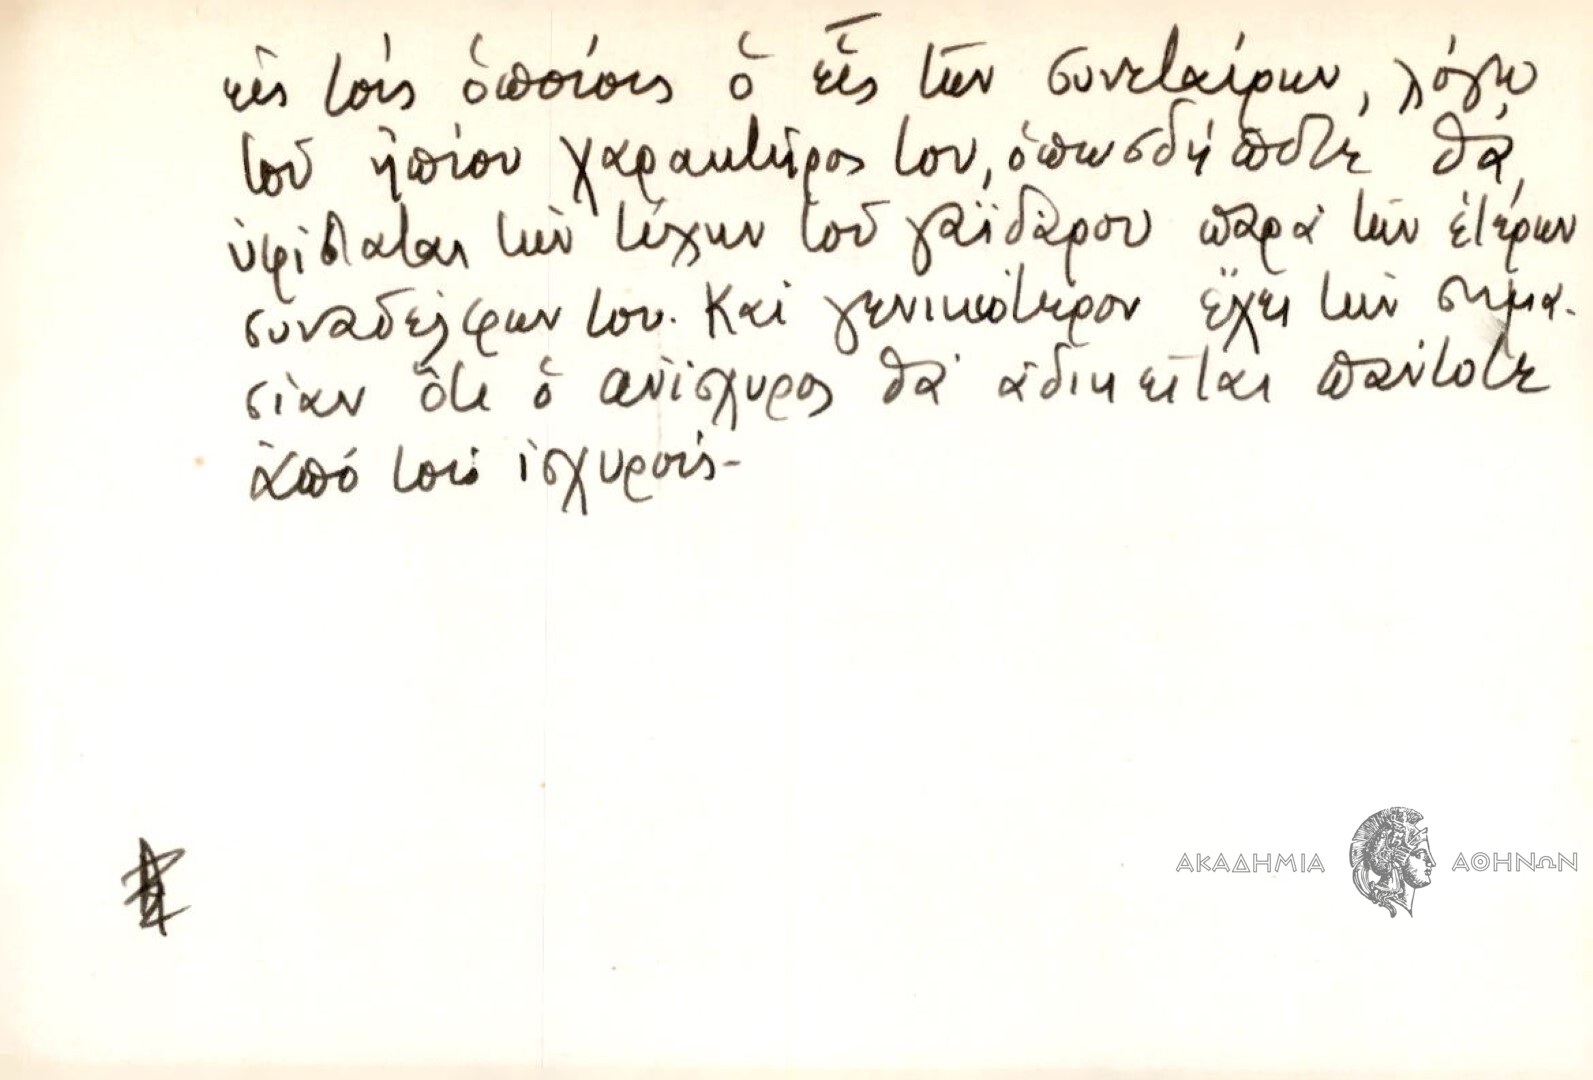 εἰς τοὺς ὁποίους ὁ εἷς τῶν συνεταίρων, λόγῳ
τοῦ ἠπίου χαρακτῆρος του, ὁπωσδήποτε θὰ
ὑφίσταται τὴν τύχην τοῦ γαϊδάρου παρὰ τῶν ἑτέρων
συναδέλφων του. Καὶ γενικώτερον ἔχει τὴν σημα-
σίαν ὅτι ὁ ἀνίσχυρος θὰ ἀδικεῖται πάντοτε
ἀπὸ τοὺς ἰσχυρούς-
ΑΚΑΔΗΜΙΑ ΑΘΗΝΩΝ